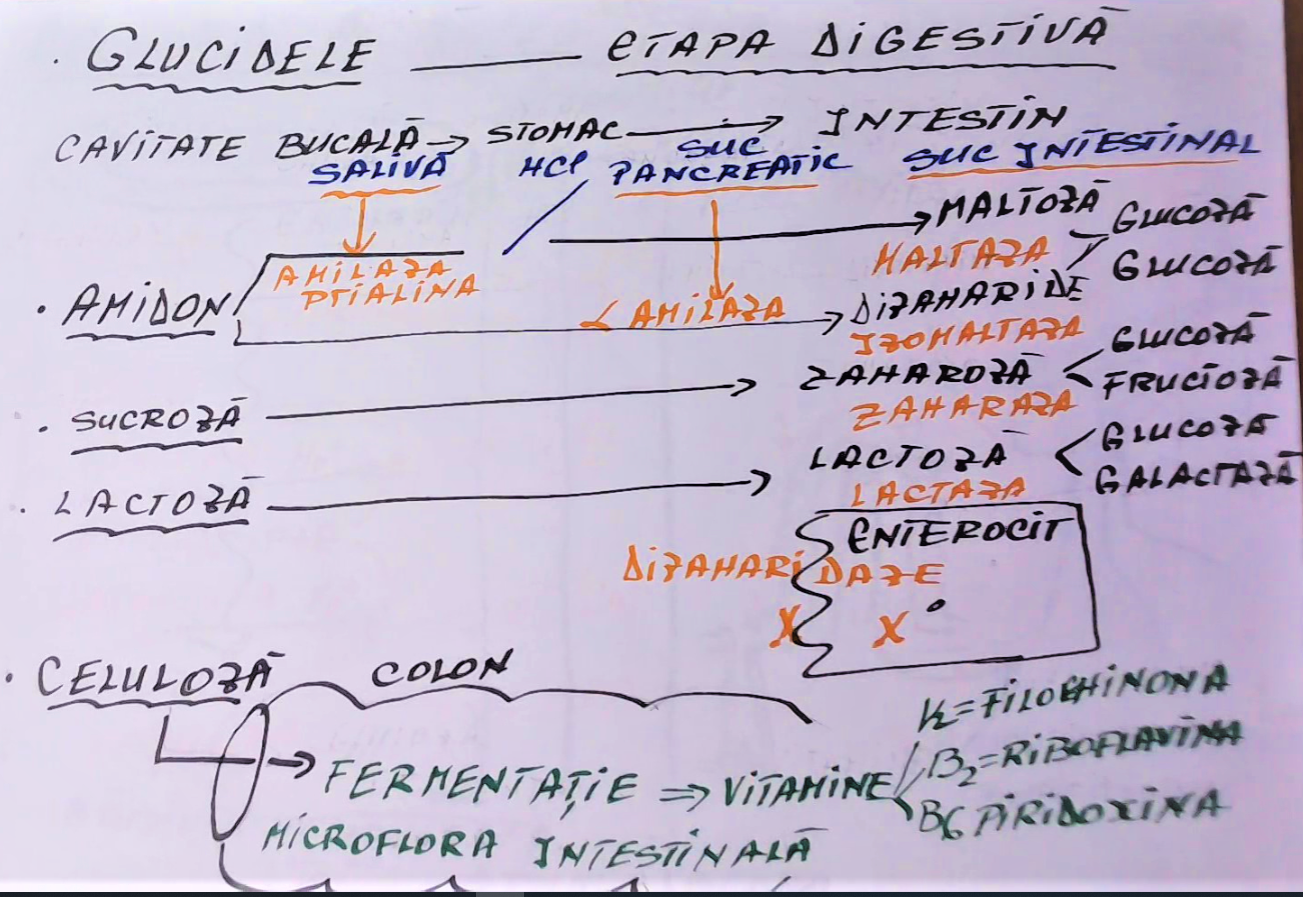 GLUCIDELE — ETAPA DIGESTIVĂ
CAVITATE BUCALĂ → STOMAC → INTESTIN
SALIVĂ HCl SUC PANCREATIC SUC INTESTINAL
MALTOZĂ GLUCOZĂ
AMILAZA MALTAZA GLUCOZĂ
PTIALINA
AMIDON α AMILAZA → DIZAHARIDE
IZOMALTAZA
SUCROZĂ → ZAHAROZĂ < GLUCOZĂ
FRUCTOZĂ
ZAHARAZA
LACTOZĂ → LACTOZĂ < GLUCOZĂ
GALACTAZĂ
LACTAZA
ENTEROCIT
DIZAHARIDAZE
X X
CELULOZĂ COLON
FERMENTAȚIE ⇒ VITAMINE
K=FILOCHINONA
B2=RIBOFLAVINA
B6 PIRIDOXINA
MICROFLORA INTESTINALĂ